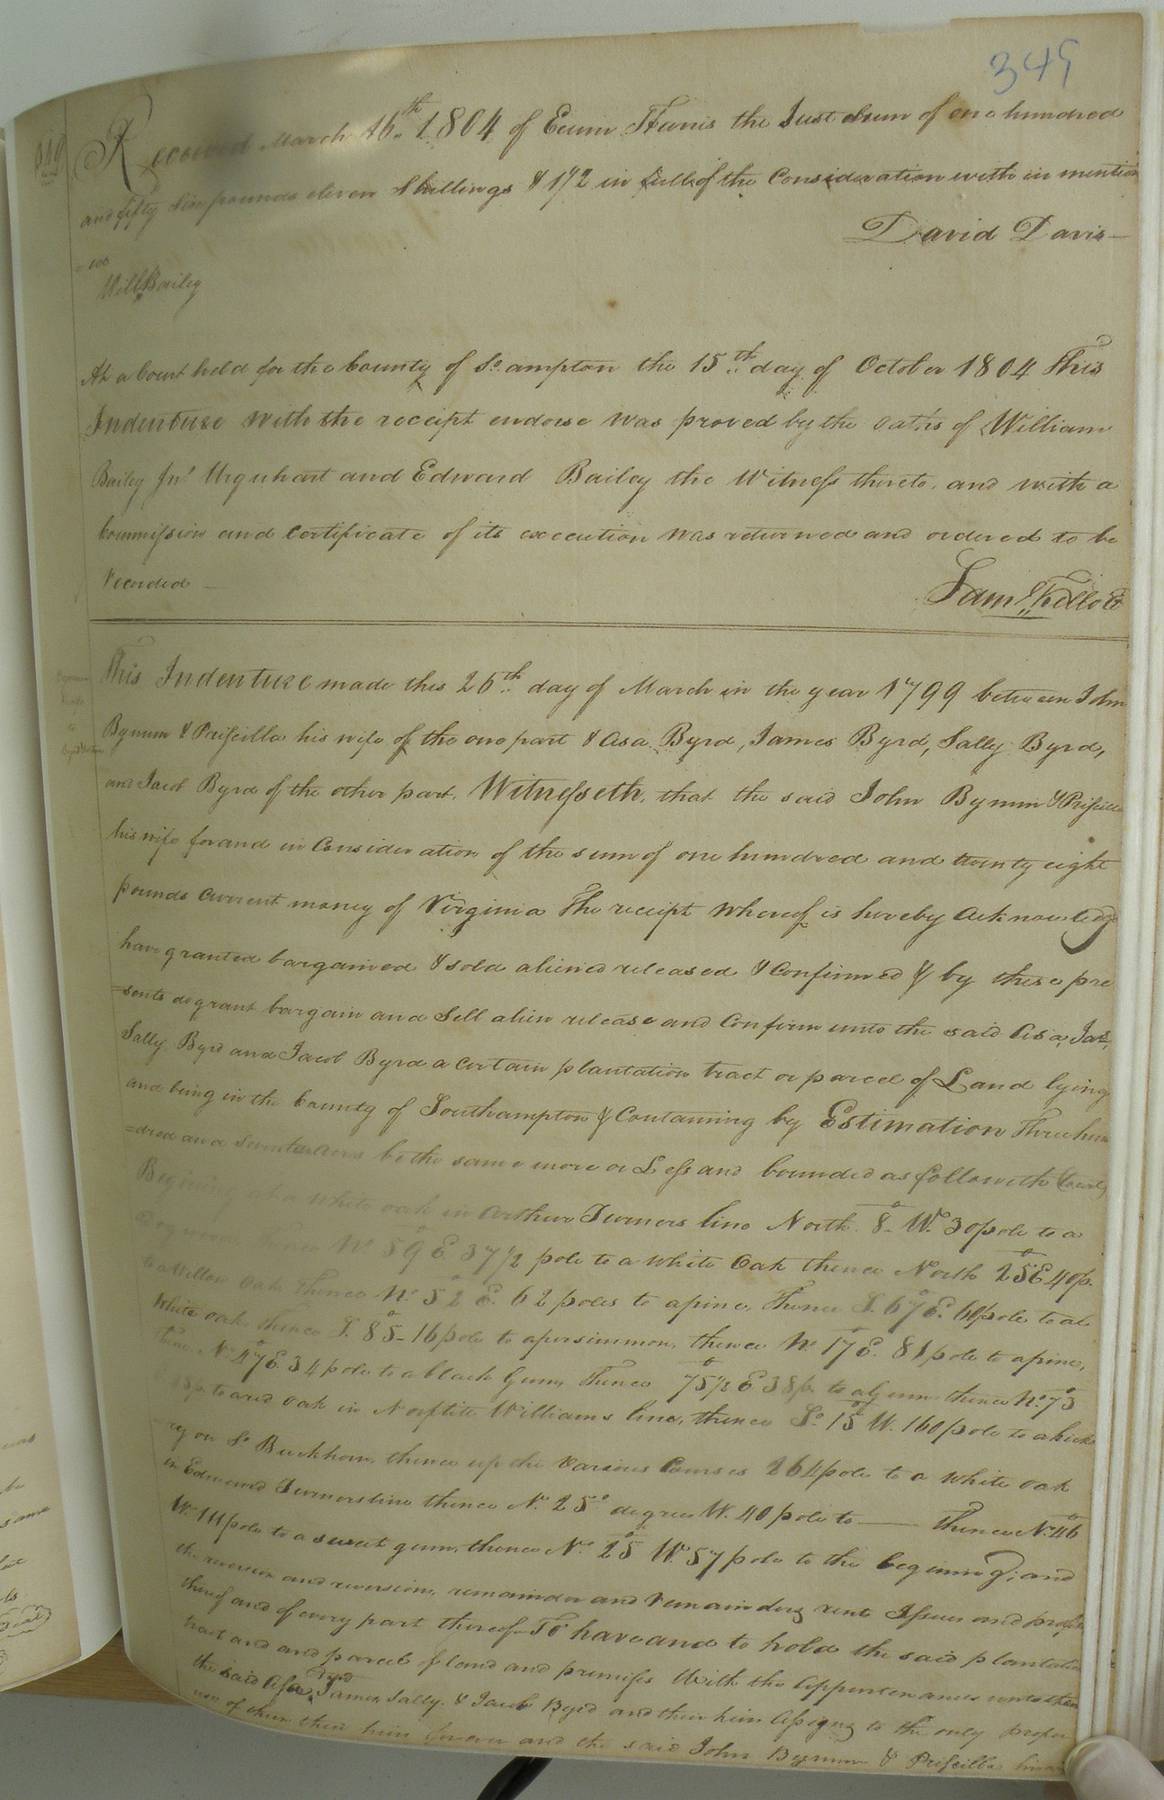 349
Received March 16th 1804 of Eunin Tunis the Just Sum of one hundred
and fifty Six pounds eleven Shillings & 1/2 in full of the Consideration with in mention
David Davis
Will Bailey
At a Court held for the County of So. ampton the 15th day of October 1804 This
Indenture with the receipt endorse was proved by the oaths of William
Bailey Jnr Urquhart and Edward Bailey the Witness thereto, and with a
Commission and Certificate of its execution was returned and ordered to be
recorded
Saml Kello
This Indenture made this 26th day of March in the year 1799 between John
Bynum & Priscilla his wife of the one part & Asa Byrd, James Byrd, Sally Byrd,
and Jacob Byrd of the other part, Witnesseth, that the said John Bynum & Priscilla
his wife for and in Consideration of the sum of one hundred and twenty eight
pounds Current money of Virginia The receipt whereof is hereby Acknowledge
have granted bargained & sold aliened released & Confirmed & by these pre
=sents do grant bargain and Sell alien release and Confirm unto the said Asa, Jas,
Sally Byrd and Jacob Byrd a certain plantation tract or parcel of Land lying
and being in the County of Southampton & Containing by Estimation Three hun
=dred and seventeen be the same more or Less and bounded as followeth
Begining at a white oak in Arthur Turners line North 8 W. 30 pole to a
No. 59 E 37 1/2 pole to a white Oak thence North 25 E 40 p.
to a Willow Oak thence No. 52 E. 62 poles to a pine, thence S. 67 E. 60 pole to a
white oak thence S. 85 - 16 pole to a persimmon, thence No 17 E. 81 pole to a pine,
No 47 E. 34 pole to a black Gum, Thence 75 1/2 E 38 p. to a Gum thence No. 73
to a red oak in Williams line, thence So. 15 W. 160 pole to a hick
ry on So Buckhorn, thence up the Various Courses 264 pole to a white oak
in Edmund Turners line thence No. 25 degrees W. 40 pole to — thence No. 46
W. 111 pole to a sweet gum, thence No. 25 W. 57 pole to the begining; and
the reversion and reversions, remainder and Remainders rents Issues and profits
thereof and of every part thereof To have and to hold the said plantation
tract and and parcel of land and premises With the Appurtenances unto them
the said Asa, James, Sally & Jacob Byrd and their heirs Assigns to the only proper
use of them their heirs forever and the said John Bynum & Priscilla